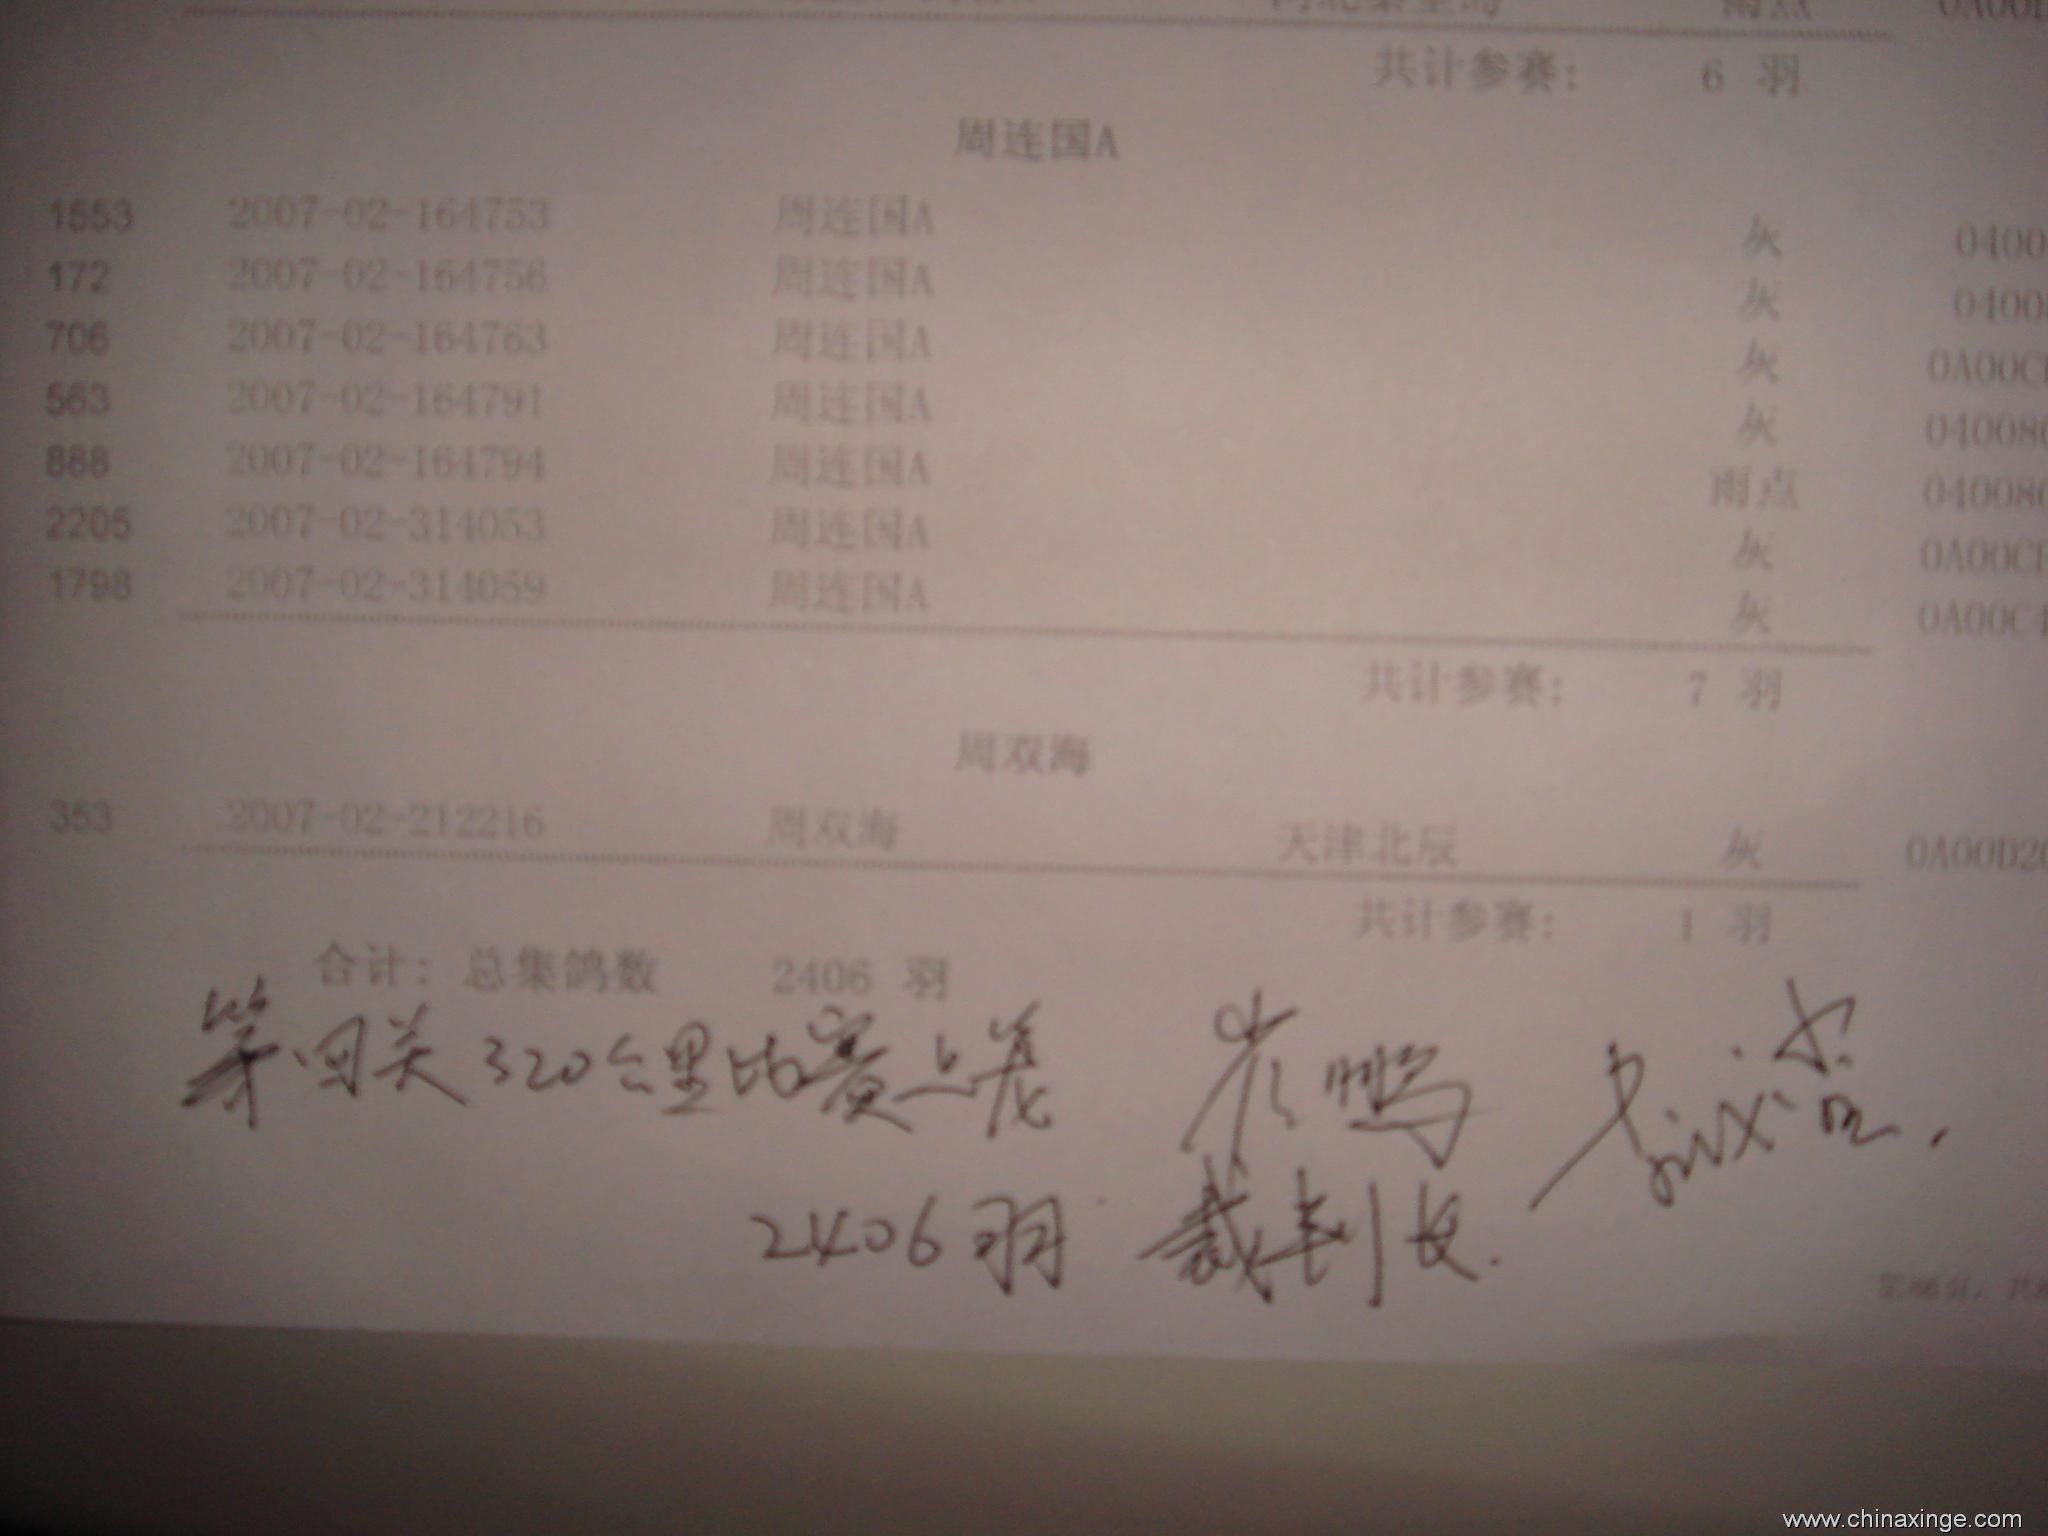 雨点 0A00D
共计参赛: 6 羽
周连国A
1553 2007-02-164753 周连国A 灰 0400
172 2007-02-164756 周连国A 灰 0400
706 2007-02-164763 周连国A 灰 0A00C
563 2007-02-164791 周连国A 灰 04008
888 2007-02-164794 周连国A 雨点 04008
2205 2007-02-314053 周连国A 灰 0A00C
1798 2007-02-314059 周连国A 灰 0A00C4
共计参赛: 7 羽
周双海
353 2007-02-212216 周双海 天津北辰 灰 0A00D2
共计参赛: 1 羽
合计: 总集鸽数 2406 羽
第四关320公里比赛上笼 崔鹏
2406羽 裁判长.
www.chinaxinge.com